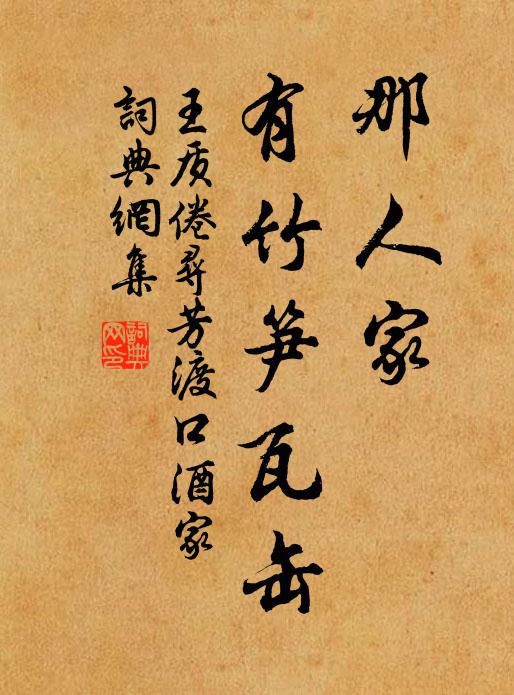 那人家
有竹笋瓦缶
王质倦尋芳渡口酒家
詞典網集
詞典网印